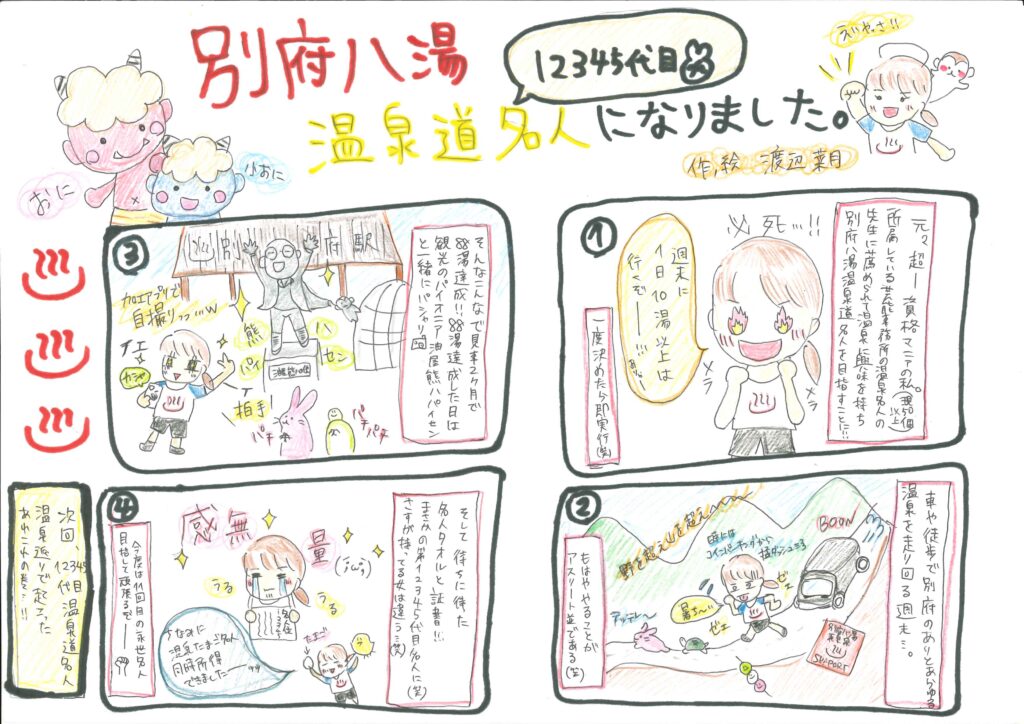 別府八湯
12345代目
温泉道名人になりました。
作,絵 渡辺菜月
えいやさ!!
おに
小おに
①
元々超——資格マニアの私。(現50個以上)
所属している芸能事務所の温泉名人の
先生に薦められて温泉に興味を持ち
別府八湯温泉道名人を目指すことに!!
必死…!!
週末に
1日10湯以上は
行くぞ———!!
メラ
メラ
一度決めたら即実行(笑)
②
車や徒歩で別府のありとあらゆる
温泉を走り回る週末…。
野を超え山を超え〜
時には
コインパーキングから
猛ダッシュ
BOON
暑ち〜
ゼェ
ゼェ
アッチィ〜
別府八湯
温泉道
SUPORT
もはややることが
アスリート並である(笑)
③
そんなこんなで見事2ヶ月で
88湯達成!!88湯達成した日は
観光のパイオニア油屋熊八パイセン
と一緒にパシャリ
別府駅
加工アプリで
自撮りっっ…w
イエーイ
カシャ
熊
八
パイ
セン
拍手!
パチ
パチ
パチ
④
そして待ちに待った
名人タオルと証書!!
まさかの第12345代目名人に(笑)
さすが持ってる女は違う…(笑)
感無量
うる
うる
ちなみに
温泉たまご名人
同時所得
できました——
たまご
今度は11回目の永世名人
目指して頑張るぞ———!!
次回、12345
代目温泉道名人
温泉巡りで起こった
あれこれの巻…!!